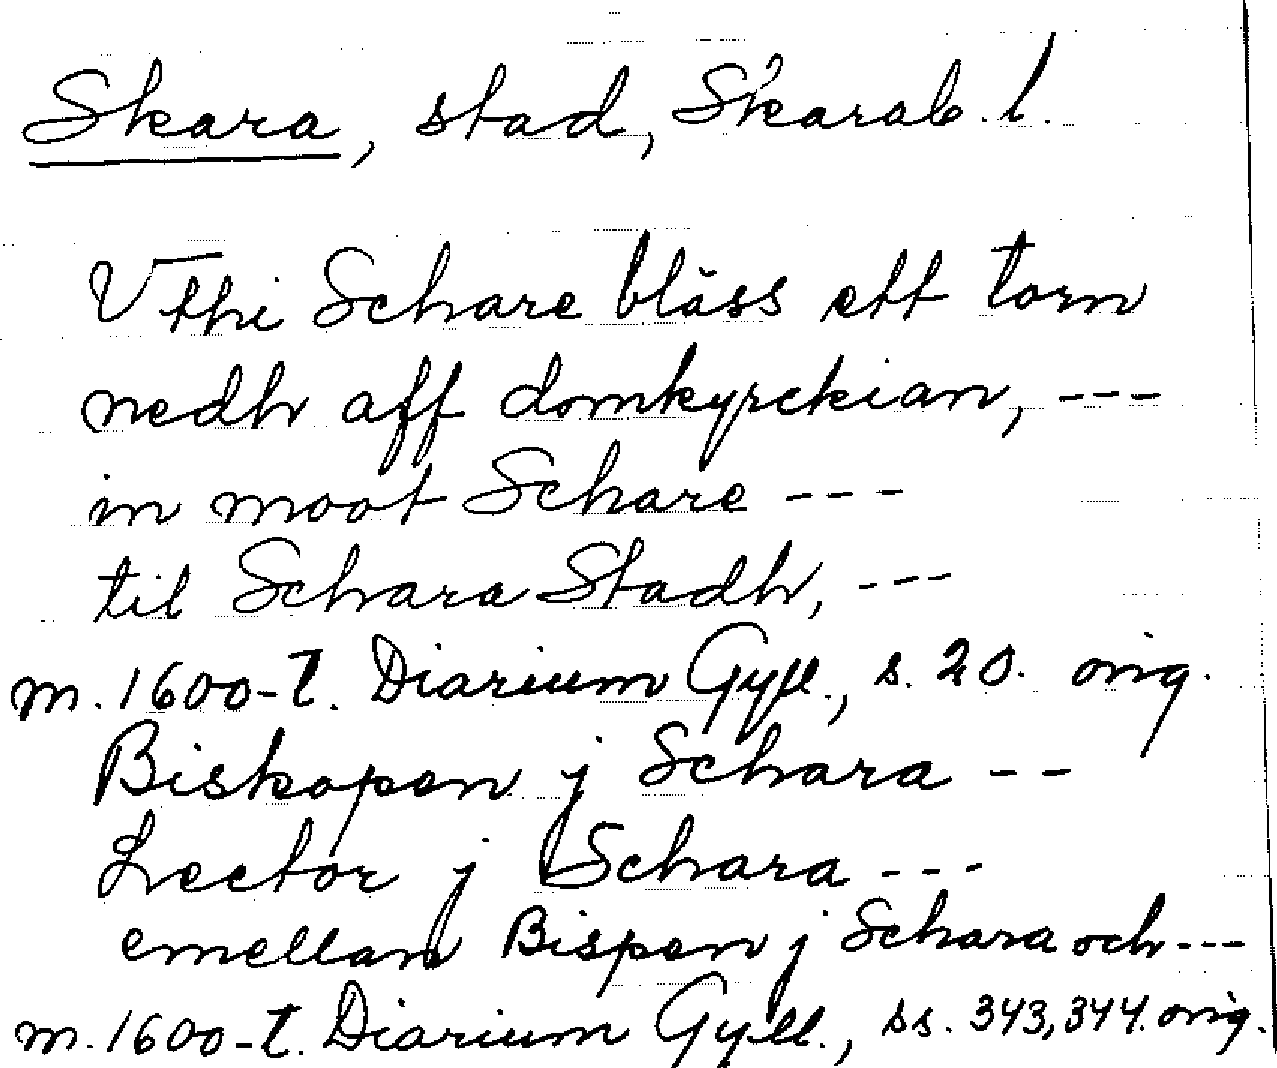 Skara, stad, Skarab. l.
Vthi Schare blåss ett torn
nedh aff domkyrckian, ---
in moot Schare ---
til Schara Stadh, ---
m. 1600-t. Diarium Gyll., s. 20. orig.
Biskopen j Schara --
Lector j Schara ---
emellan Bispen j Schara och ---
m. 1600-t. Diarium Gyll., ss. 343, 344. orig.